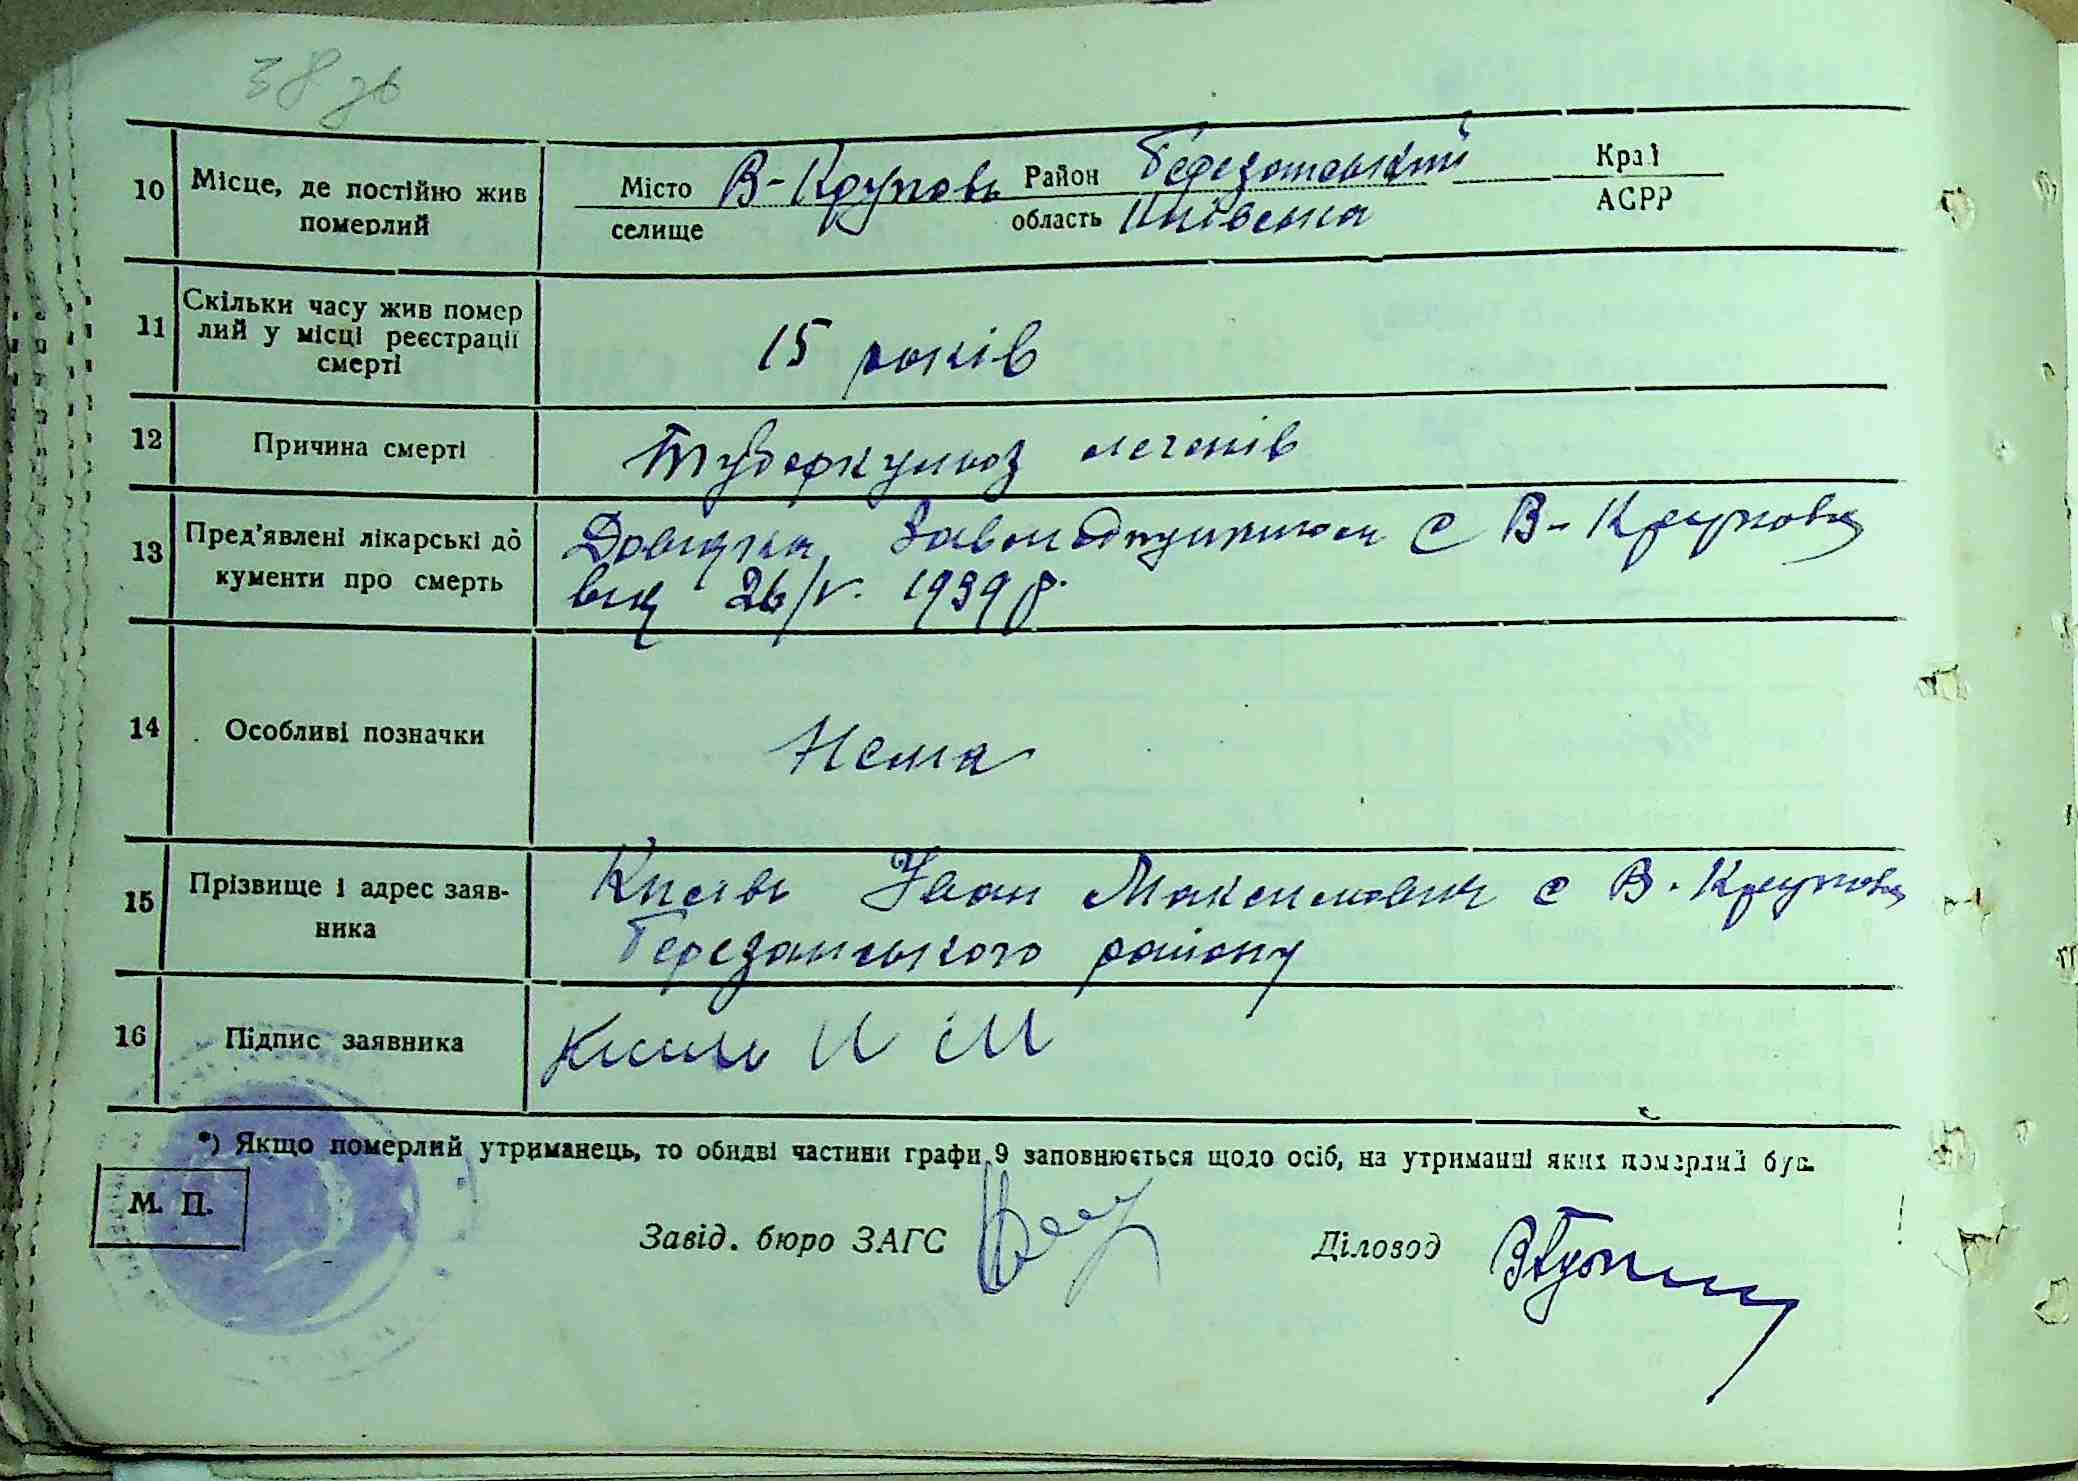 38 зв
10 Місце, де постійно жив померлий
Місто В-Круполь Район Березанський Край
селище область Київська АСРР
11 Скільки часу жив помер
лий у місці реєстрації
смерті
15 років
12 Причина смерті Туберкульоз легенів
13 Пред'явлені лікарські до
кументи про смерть
Довідка, Завмедпунктом с В-Круполь
від 26/V. 1939 р.
14 Особливі позначки Нема
15 Прізвище і адрес заяв-
ника
Кисіль Іван Максимович с В-Круполь
Березанського району
16 Підпис заявника Кисиль И М
*) Якщо померлий утриманець, то обидві частини графи 9 заповнюється щодо осіб, на утриманні яких померлий був.
М. П.
Завід. бюро ЗАГС Діловод